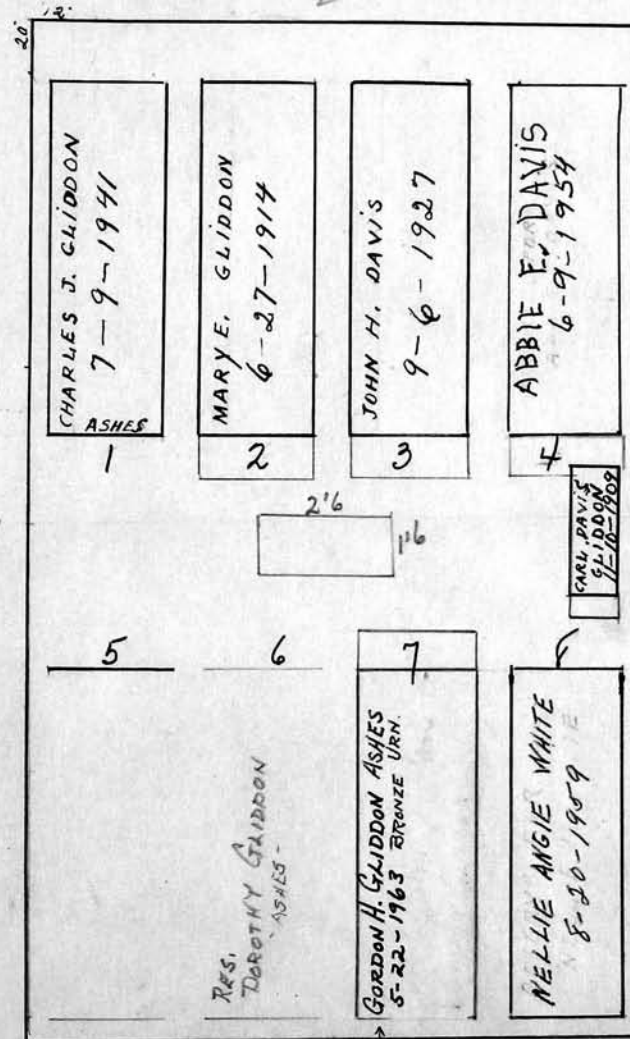 20'
12'
CHARLES J. GLIDDON
7-9-1941
ASHES
1
MARY E. GLIDDON
6-27-1914
2
JOHN H. DAVIS
9-6-1927
3
ABBIE E. DAVIS
6-9-1954
4
CARL DAVIS
GLIDDON
11-10-1909
2'6
1'6
5
6
RES.
DOROTHY GLIDDON
ASHES-
7
GORDON H. GLIDDON ASHES
5-22-1963 BRONZE URN.
8
NELLIE ANGIE WHITE
8-20-1959